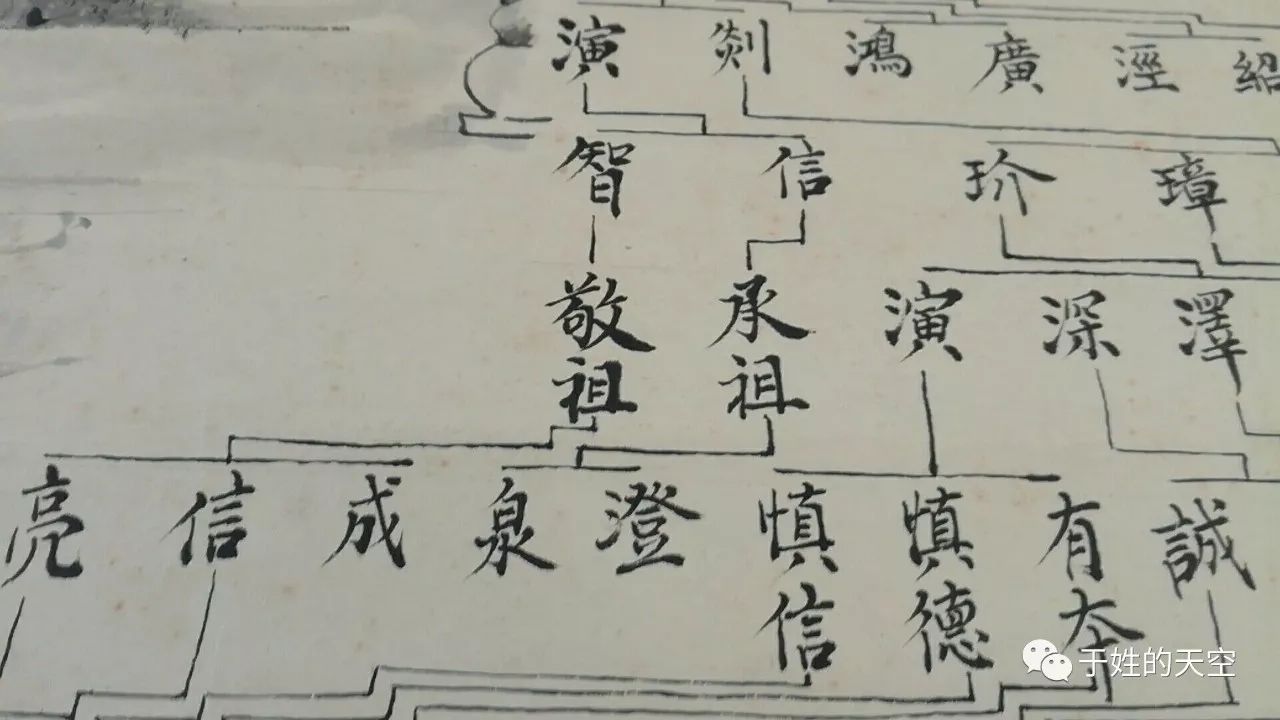 演 剡 鴻 廣 涇 紹
智 信 玠 璋
敬祖 承祖 演 深 澤
亮 信 成 泉 澄 慎信 慎德 有本 誠
于姓的天空